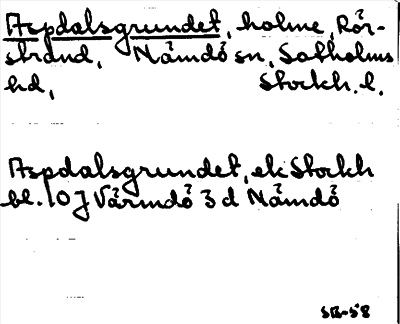 Aspdalsgrundet, holme, Rör-
strand, Nämdö sn, Sotholms
hd, Stockh. l.
Aspdalsgrundet, ek Stockh
bl. 10 J Värmdö 3 d Nämdö
SB-58